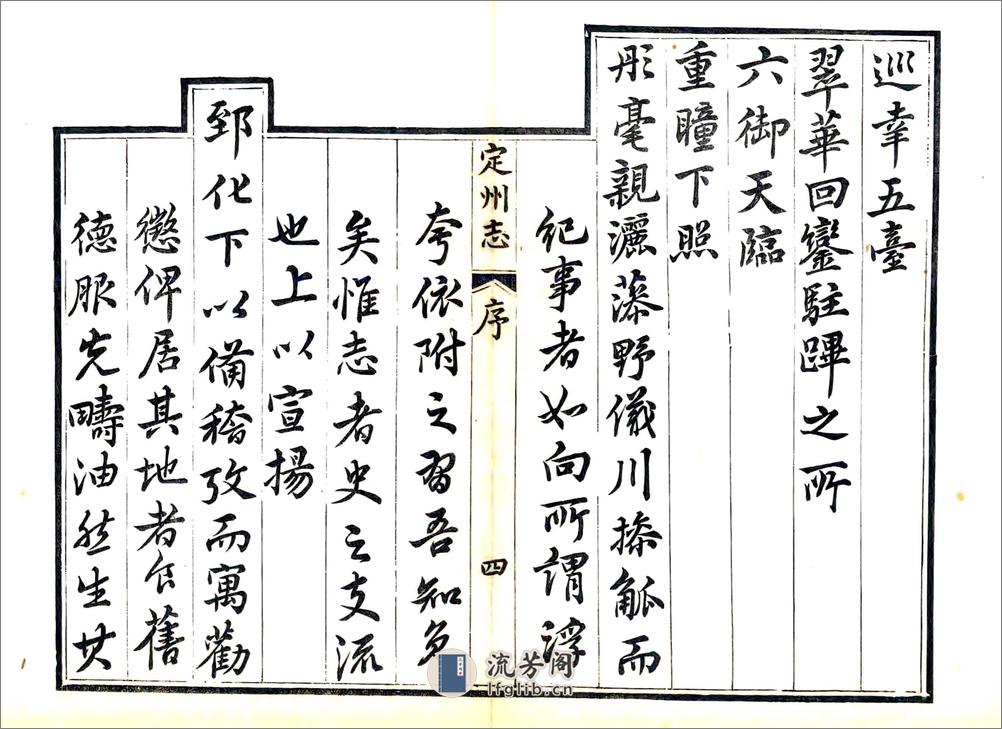 巡幸五臺
翠華回鑾駐蹕之所
六御天臨
重瞳下照
彤毫親灑藻野儀川搽觚而
紀事者如向所謂浮
定州志
序
四
夸依附之習吾知免
矣惟志者史之支流
也上以宣揚
郅化下以備稽攷而寓勸
懲俾居其地者食舊
德服先疇油然生其
流芳阁
lfglib.cn